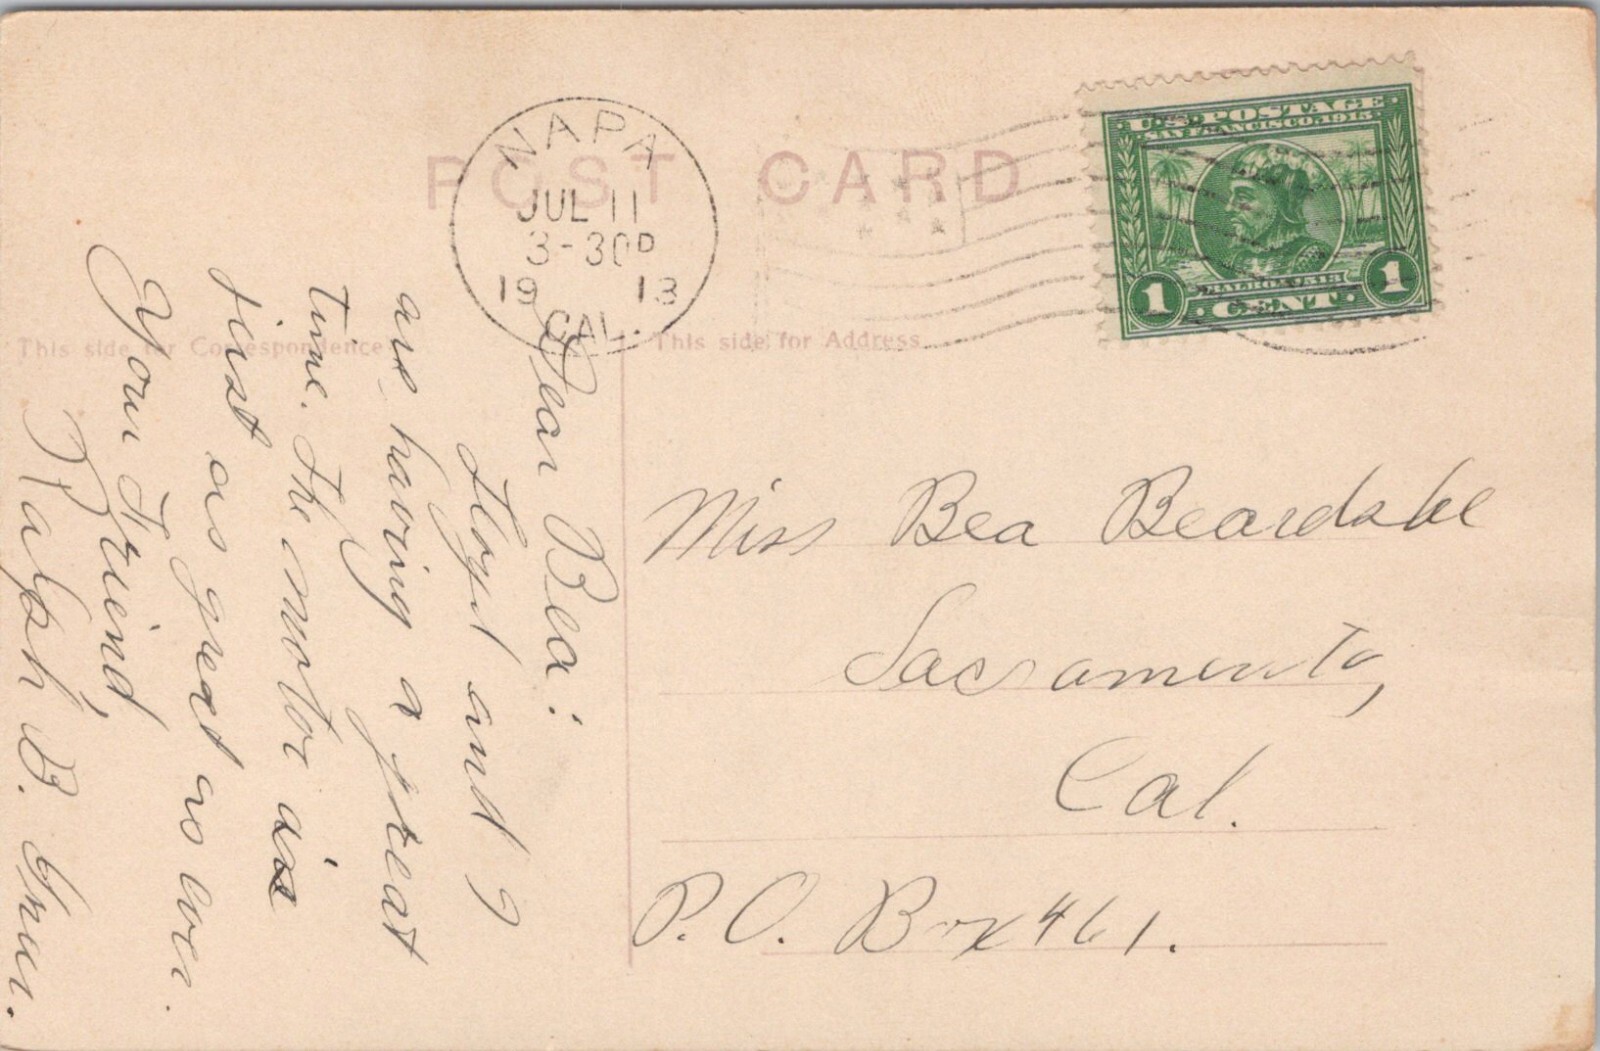 POST CARD
NAPA
JUL 11
3-30P
19 13
CAL.
U.S. POSTAGE
SAN FRANCISCO, 1915
BALBOA, 1513
1 CENT 1
This side for Correspondence
This side for Address
Dear Bea:
Floyd and I
are having a great
time. The motor is
just as great as ever.
Your Friend,
Ralph B.
Miss Bea
Sacramento,
Cal.
P.O. Box 461.